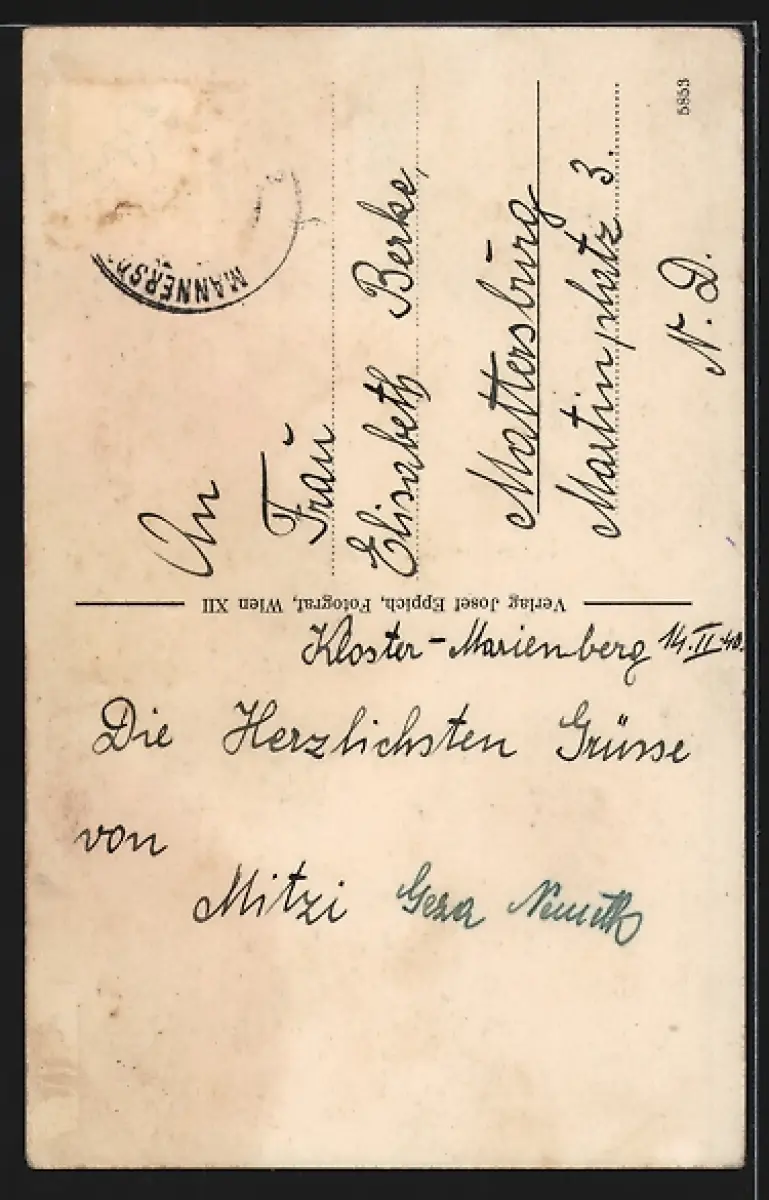 5853
An
Frau
Elisabeth Berke,
Mattersburg
Martinplatz 3.
N. D.
Verlag Josef Eppich, Fotograf, Wien XII
Kloster-Marienberg 14.II.40.
Die Herzlichsten Grüsse
von
Mitzi Geza Nemeth